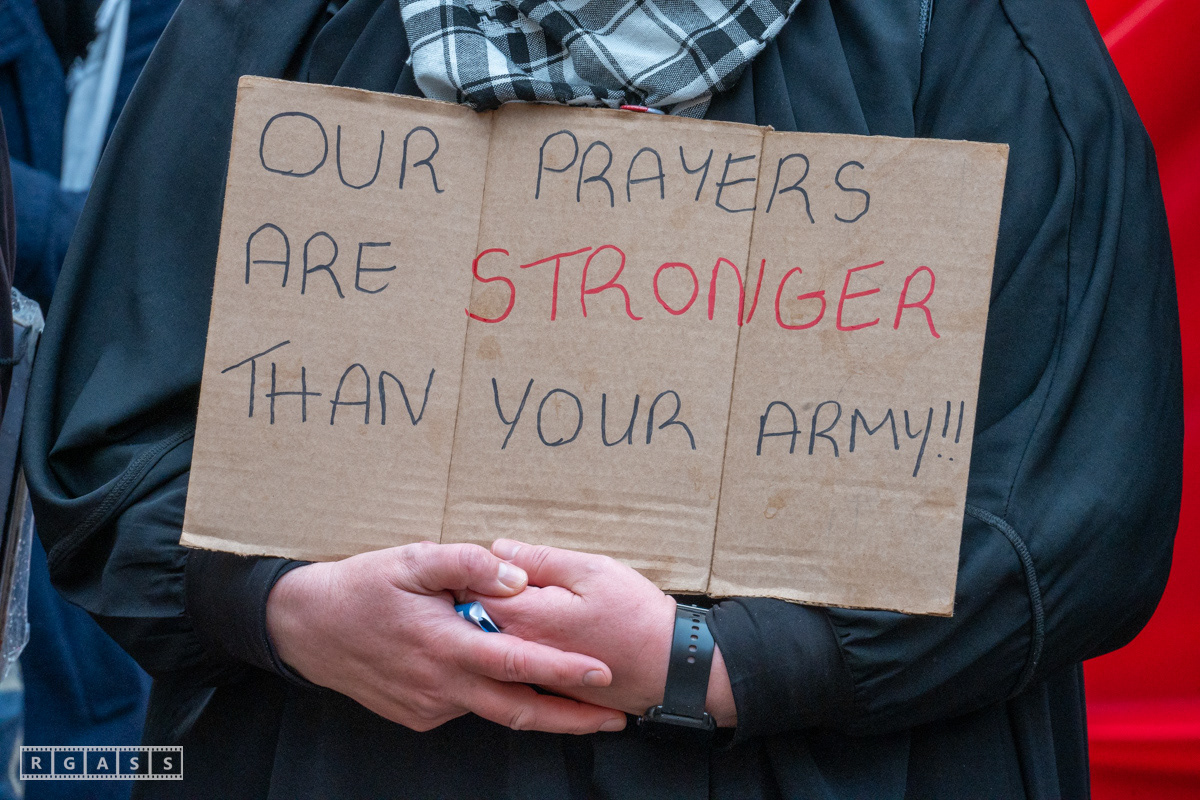 OUR PRAYERS
ARE STRONGER
THAN YOUR ARMY!!
RGASS